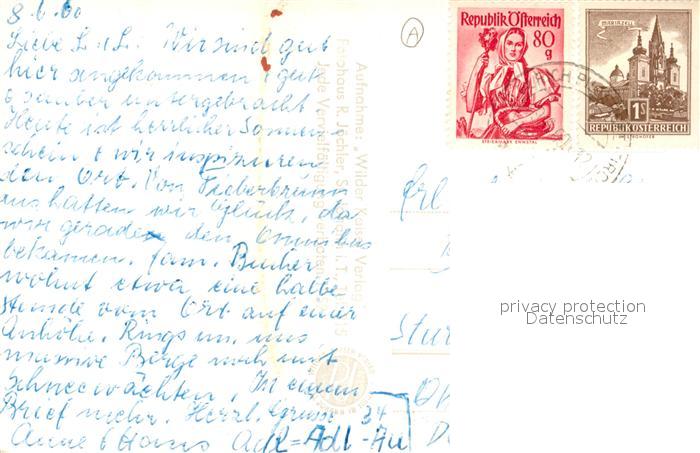 8.6.60
Liebe L. + L. Wir sind gut
hier angekommen + gut
+ sauber untergebracht
Heute ist herrlicher Sonnen-
schein + wir inspizieren
den Ort. Von Fieberbrunn
aus hatten wir Glück, da
wir gerade den Omnibus
bekamen. Fam. Bucher
wohnt etwa eine halbe
Stunde vom Ort auf einer
Anhöhe. Rings um uns
massive Berge noch mit
Schneewächten. In einem
Brief mehr. Herzl. Grüsse
Anne + Hans
34
Aufnahme: „Wilder Kaiser" Verlag
Fotohaus R. Jöchler, St.
Jede Vervielfältigung verboten
A
Republik Österreich
80
g
STEIERMARK ENNSTAL
MARIAZELL
1S
REPUBLIK ÖSTERREICH
Stu
privacy protection
Datenschutz